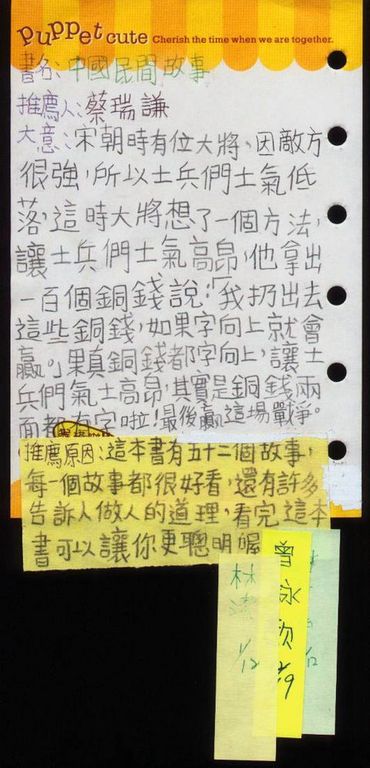 Puppet cute Cherish the time when we are together.
書名:中國民間故事
推薦人:蔡瑞謙
大意:宋朝時有位大將,因敵方
很強,所以士兵們士氣低
落,這時大將想了一個方法,
讓士兵們士氣高昂,他拿出
一百個銅錢說:「我扔出去
這些銅錢,如果字向上就會
贏。」果真銅錢都字向上,讓士
兵們氣士高昂,其實是銅錢兩
面都有字啦!最後贏這場戰爭。
推薦原因:這本書有五十二個故事,
每一個故事都很好看,還有許多
告訴人做人的道理,看完這本
書可以讓你更聰明喔
林
1/12
曾詠欣
1/9